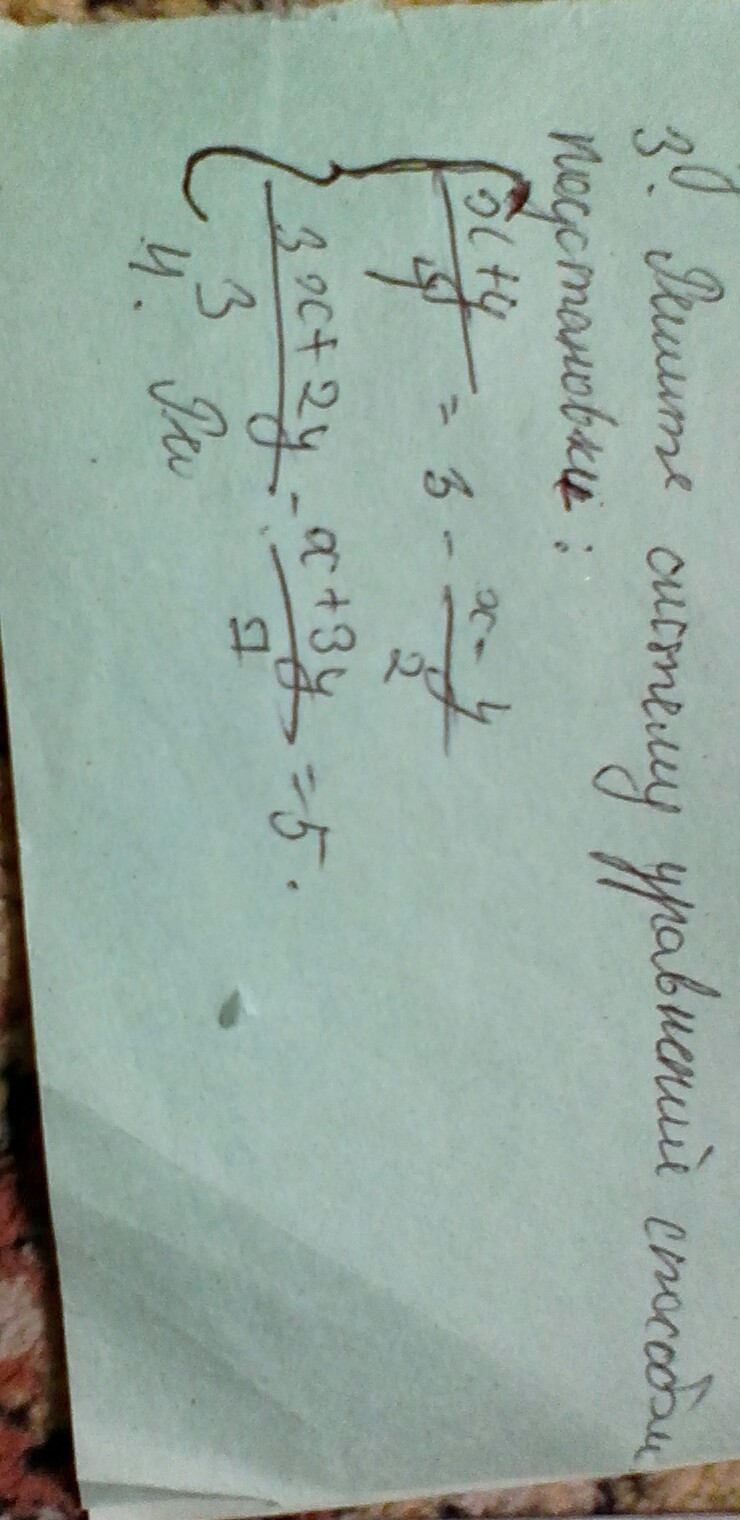 3. Решите систему уравнений способом
подстановки:
x+y = 3 - x-y
2
3x+2y - x+3y = 5.
3
4. Ре